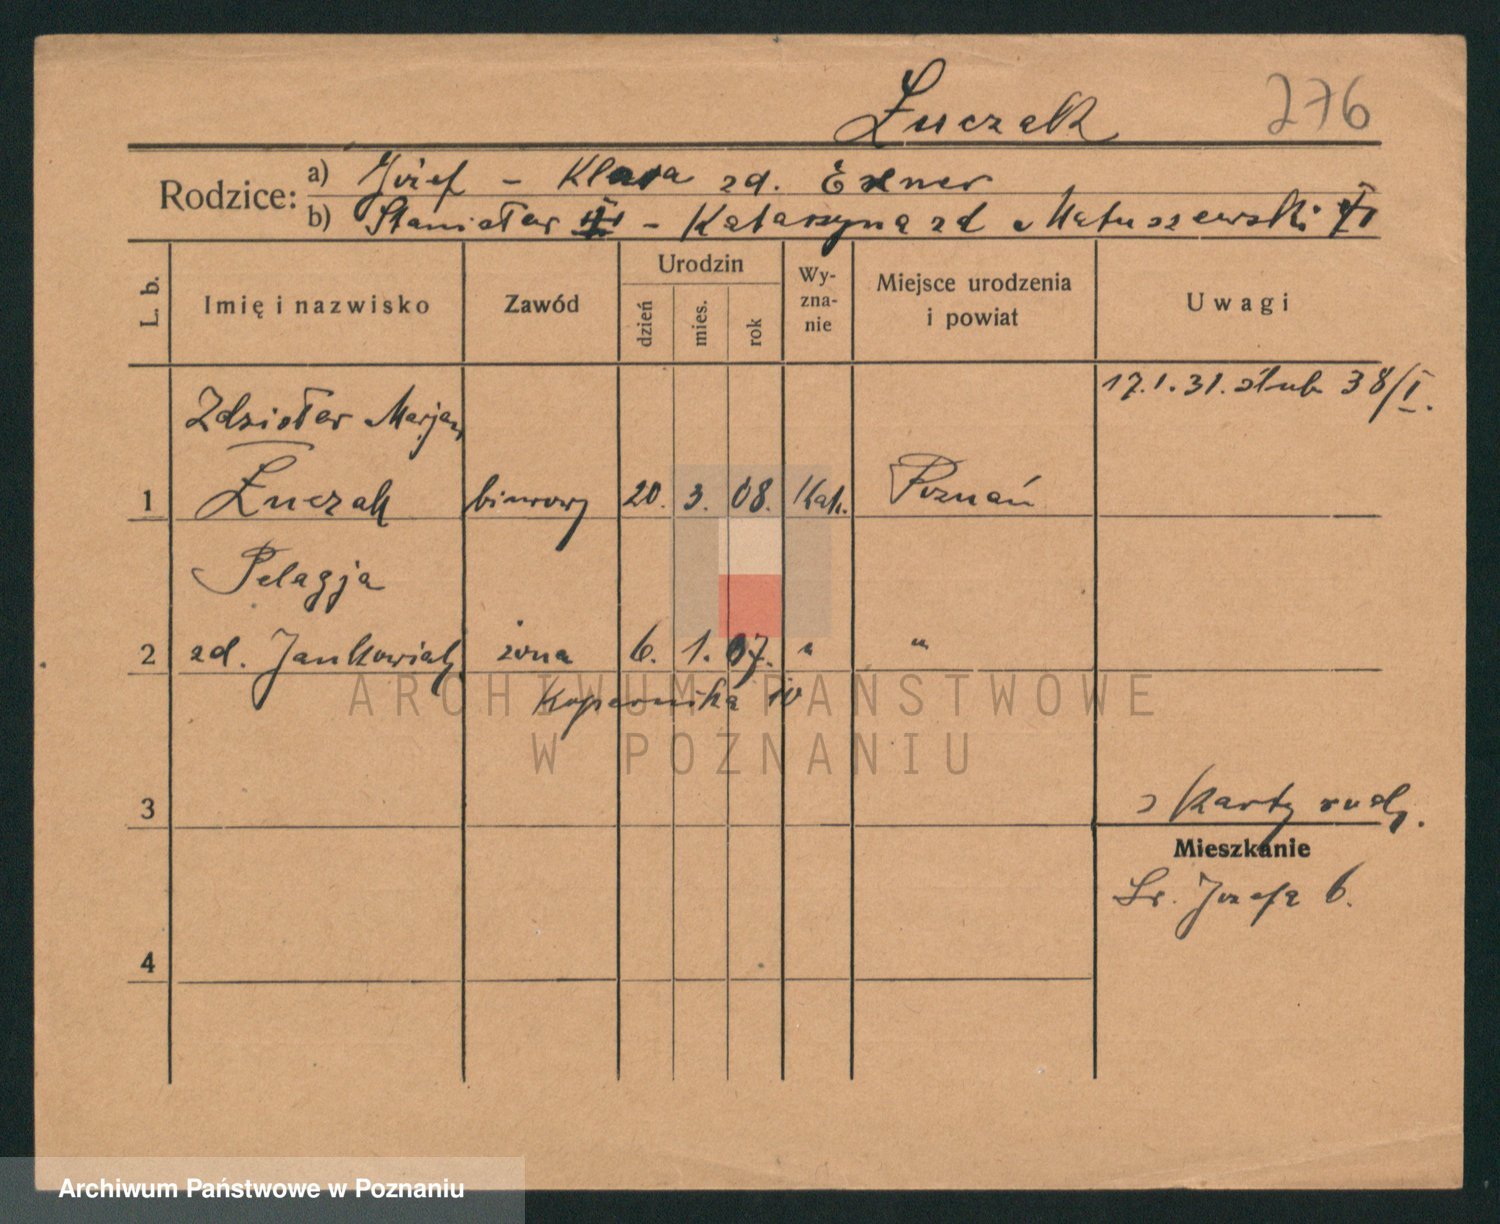 Łuczak 276
Rodzice: a) Józef - Klara zd. Exner
b) Stanisław - Katarzyna zd Matuszewski
L. b. Imię i nazwisko Zawód Urodzin dzień mies. rok Wy-zna-nie Miejsce urodzenia i powiat Uwagi
17.1.31. ślub 38/I.
Zdzisław Marjan
1 Łuczak biurowy 20. 3. 08. Kat. Poznań
Pelagja
2 zd. Jankowiak żona 6. 1. 07. " "
Kopernika 10
ARCHIWUM PAŃSTWOWE
W POZNANIU
3 z karty rodz.
Mieszkanie
Św. Józefa 6.
4
Archiwum Państwowe w Poznaniu